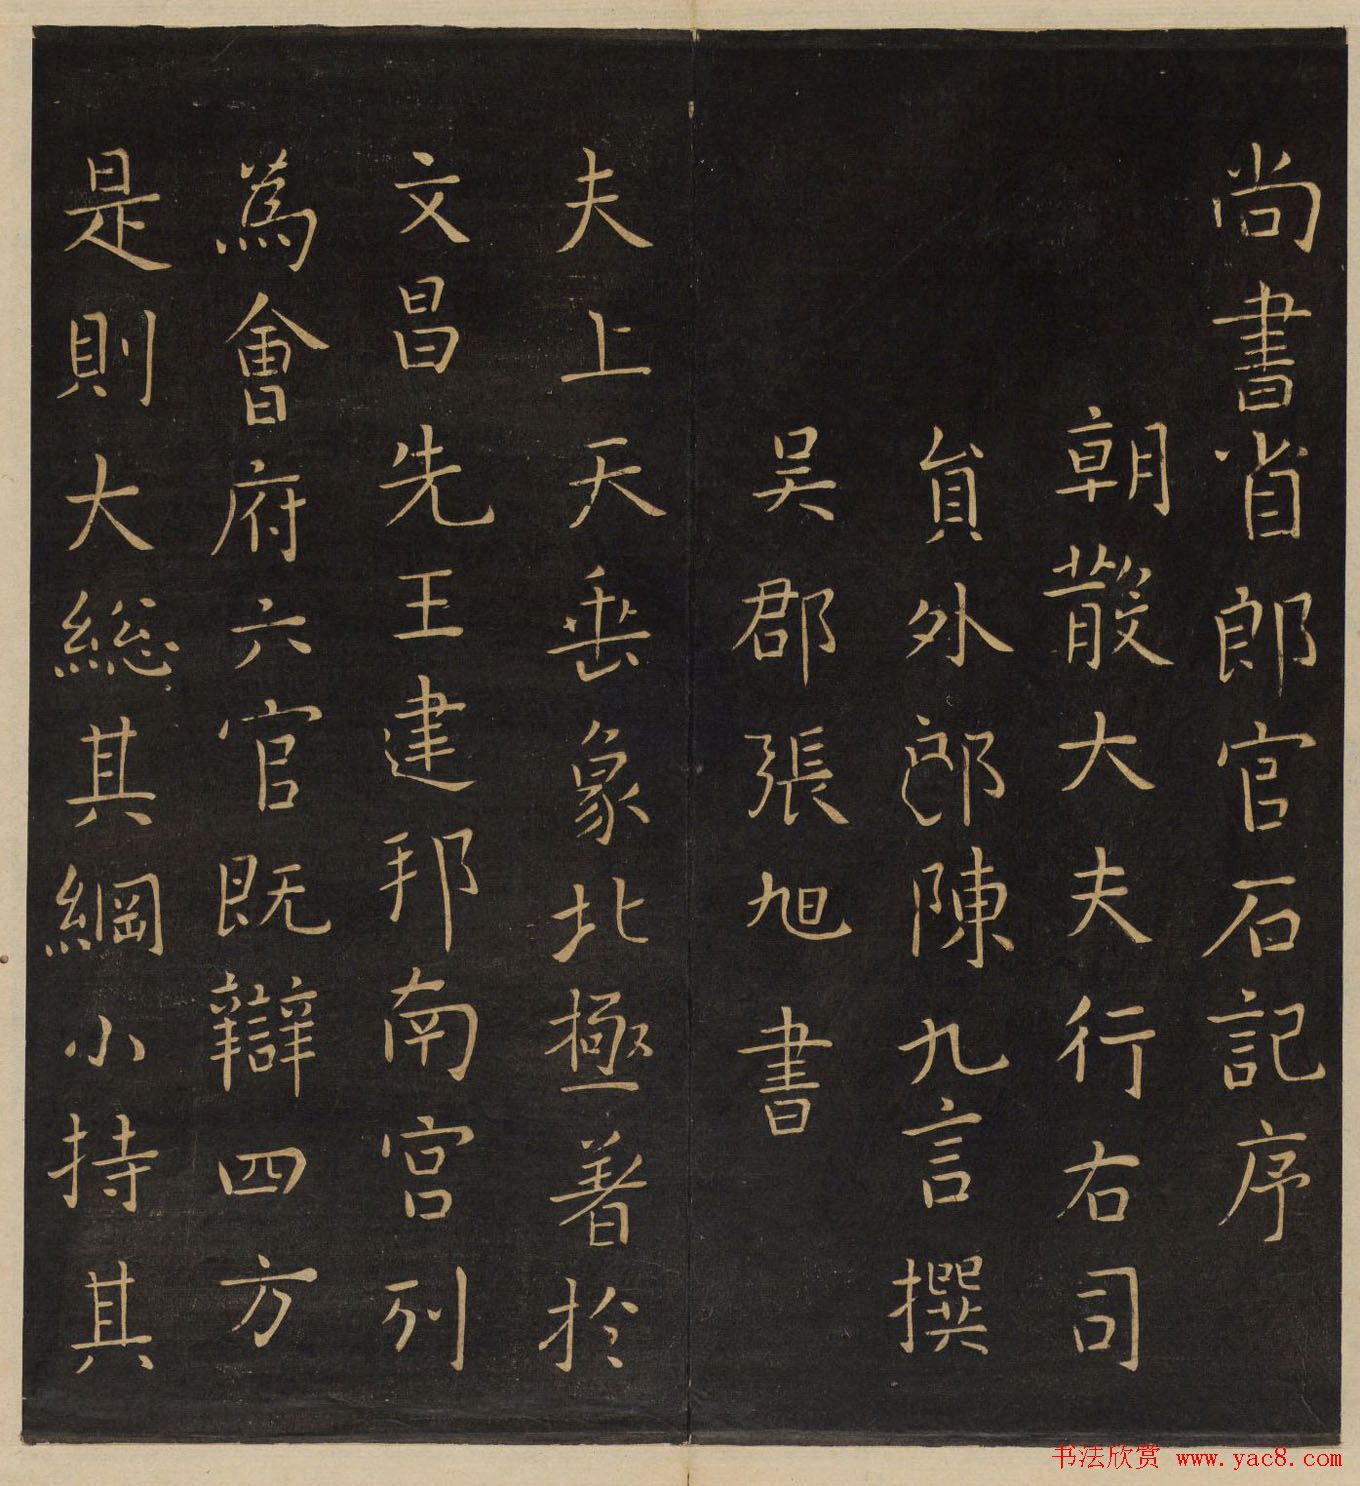 尚書省郎官石記序
朝散大夫行右司
員外郎陳九言撰
吳郡張旭書
夫上天垂象北極著於
文昌先王建邦南宮列
為會府六官既辯四方
是則大総其綱小持其
书法欣赏 www.yac8.com